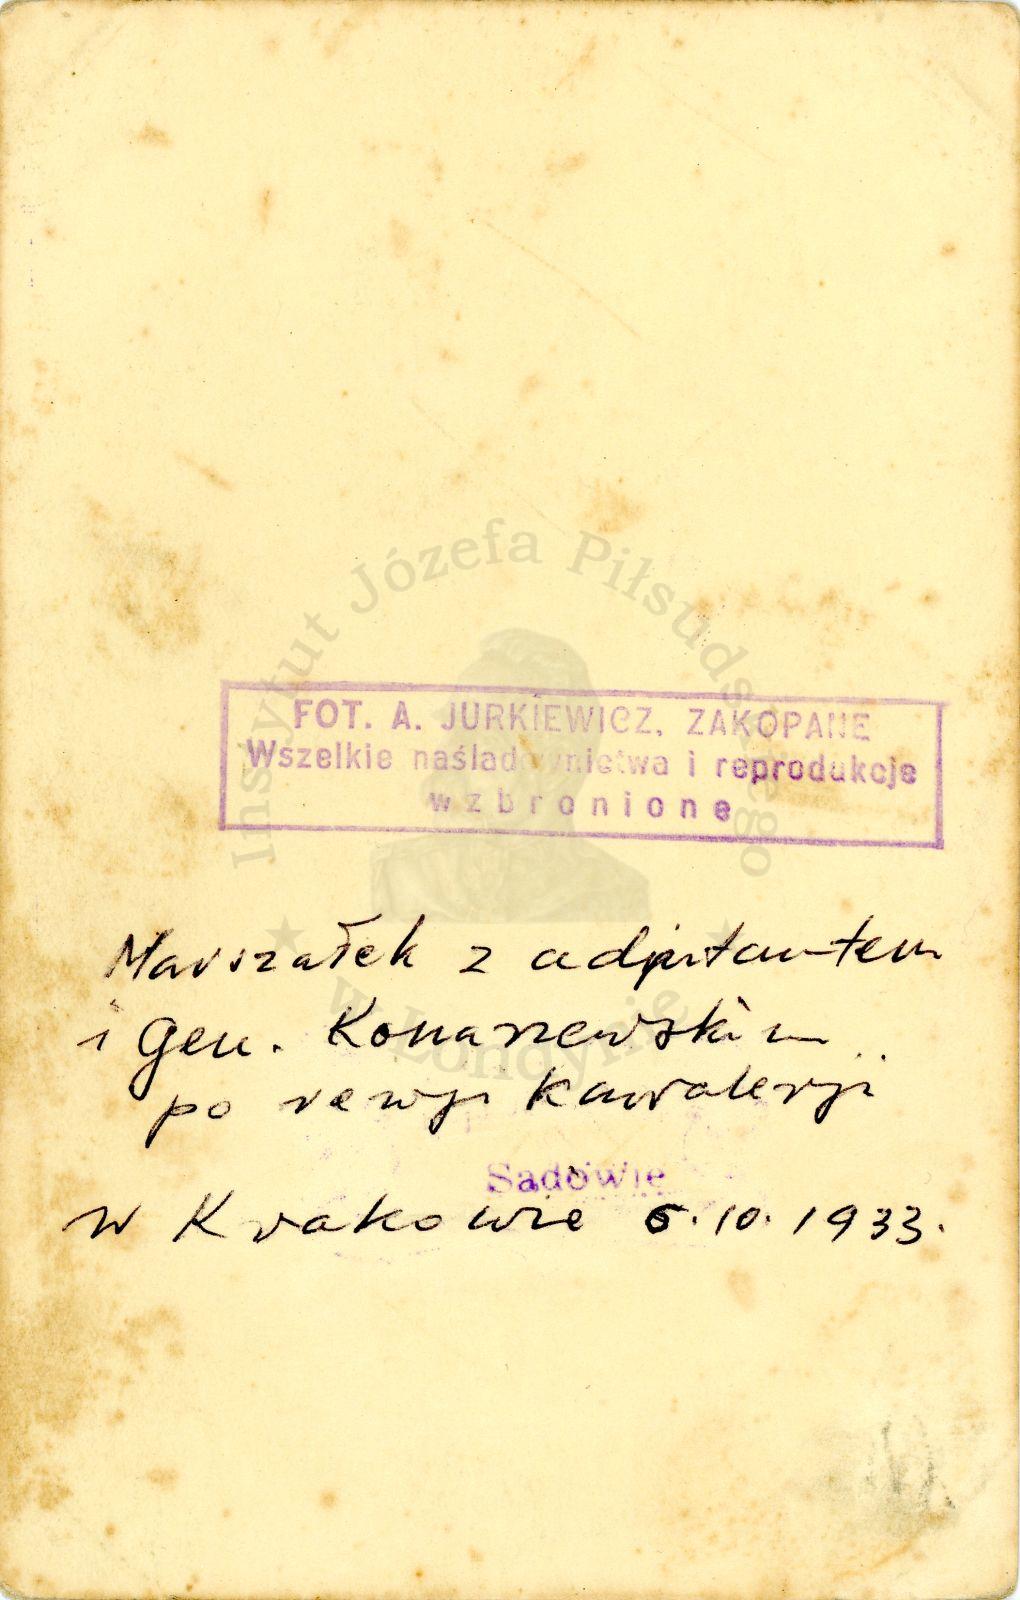 Instytut Józefa Piłsudskiego
w Londynie
FOT. A. JURKIEWICZ, ZAKOPANE
Wszelkie naśladownictwa i reprodukcje
wzbronione
Marszałek z adjutantem
i Gen. Konarzewskim
po rewji kawalerji
Sadowie
w Krakowie 6.10.1933.